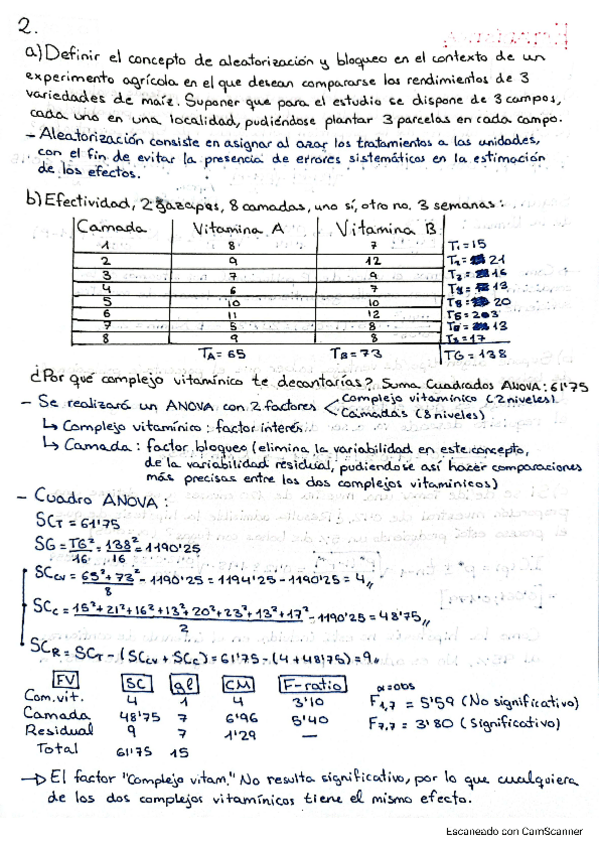 2.
a) Definir el concepto de aleatorización y bloqueo en el contexto de un
experimento agrícola en el que desean compararse los rendimientos de 3
variedades de maíz. Suponer que para el estudio se dispone de 3 campos,
cada uno en una localidad, pudiéndose plantar 3 parcelas en cada campo.
- Aleatorización consiste en asignar al azar los tratamientos a las unidades,
con el fin de evitar la presencia de errores sistemáticos en la estimación
de los efectos.
b) Efectividad, 2 gazapos, 8 camadas, uno sí, otro no. 3 semanas:
Camada Vitamina A Vitamina B
1 8 7 T1=15
2 9 12 21
3 7 9 16
4 6 7 13
5 10 10 20
6 11 12
7 5 8 13
8 9 8 17
TA=65 TB=73 TG=138
¿Por qué complejo vitamínico te decantarías? Suma Cuadrados ANOVA: 61'75
- Se realizará un ANOVA con 2 factores Complejo vitamínico (2 niveles)
Camadas (8 niveles)
↳ Complejo vitamínico: factor interés
↳ Camada: factor bloqueo (elimina la variabilidad en este concepto,
de la variabilidad residual, pudiéndose así hacer comparaciones
más precisas entre los dos complejos vitamínicos)
- Cuadro ANOVA:
SCT = 61'75
SG = TG²/16 = 138²/16 = 1190'25
SCcv = 65²+73²/8 - 1190'25 = 1194'25 - 1190'25 = 4
SCc = 15²+21²+16²+13²+20²+23²+13²+17²/2 - 1190'25 = 48'75
SCR = SCT - (SCcv + SCc) = 61'75 - (4+48'75) = 9
FV SC gl CM F-ratio α=0'05
Com.vit. 4 1 4 3'10 F1,7 = 5'59 (No significativo)
Camada 48'75 7 6'96 5'40 F7,7 = 3'80 (Significativo)
Residual 9 7 1'29 —
Total 61'75 15
→ El factor "Complejo vitam." No resulta significativo, por lo que cualquiera
de los dos complejos vitamínicos tiene el mismo efecto.
Escaneado con CamScanner